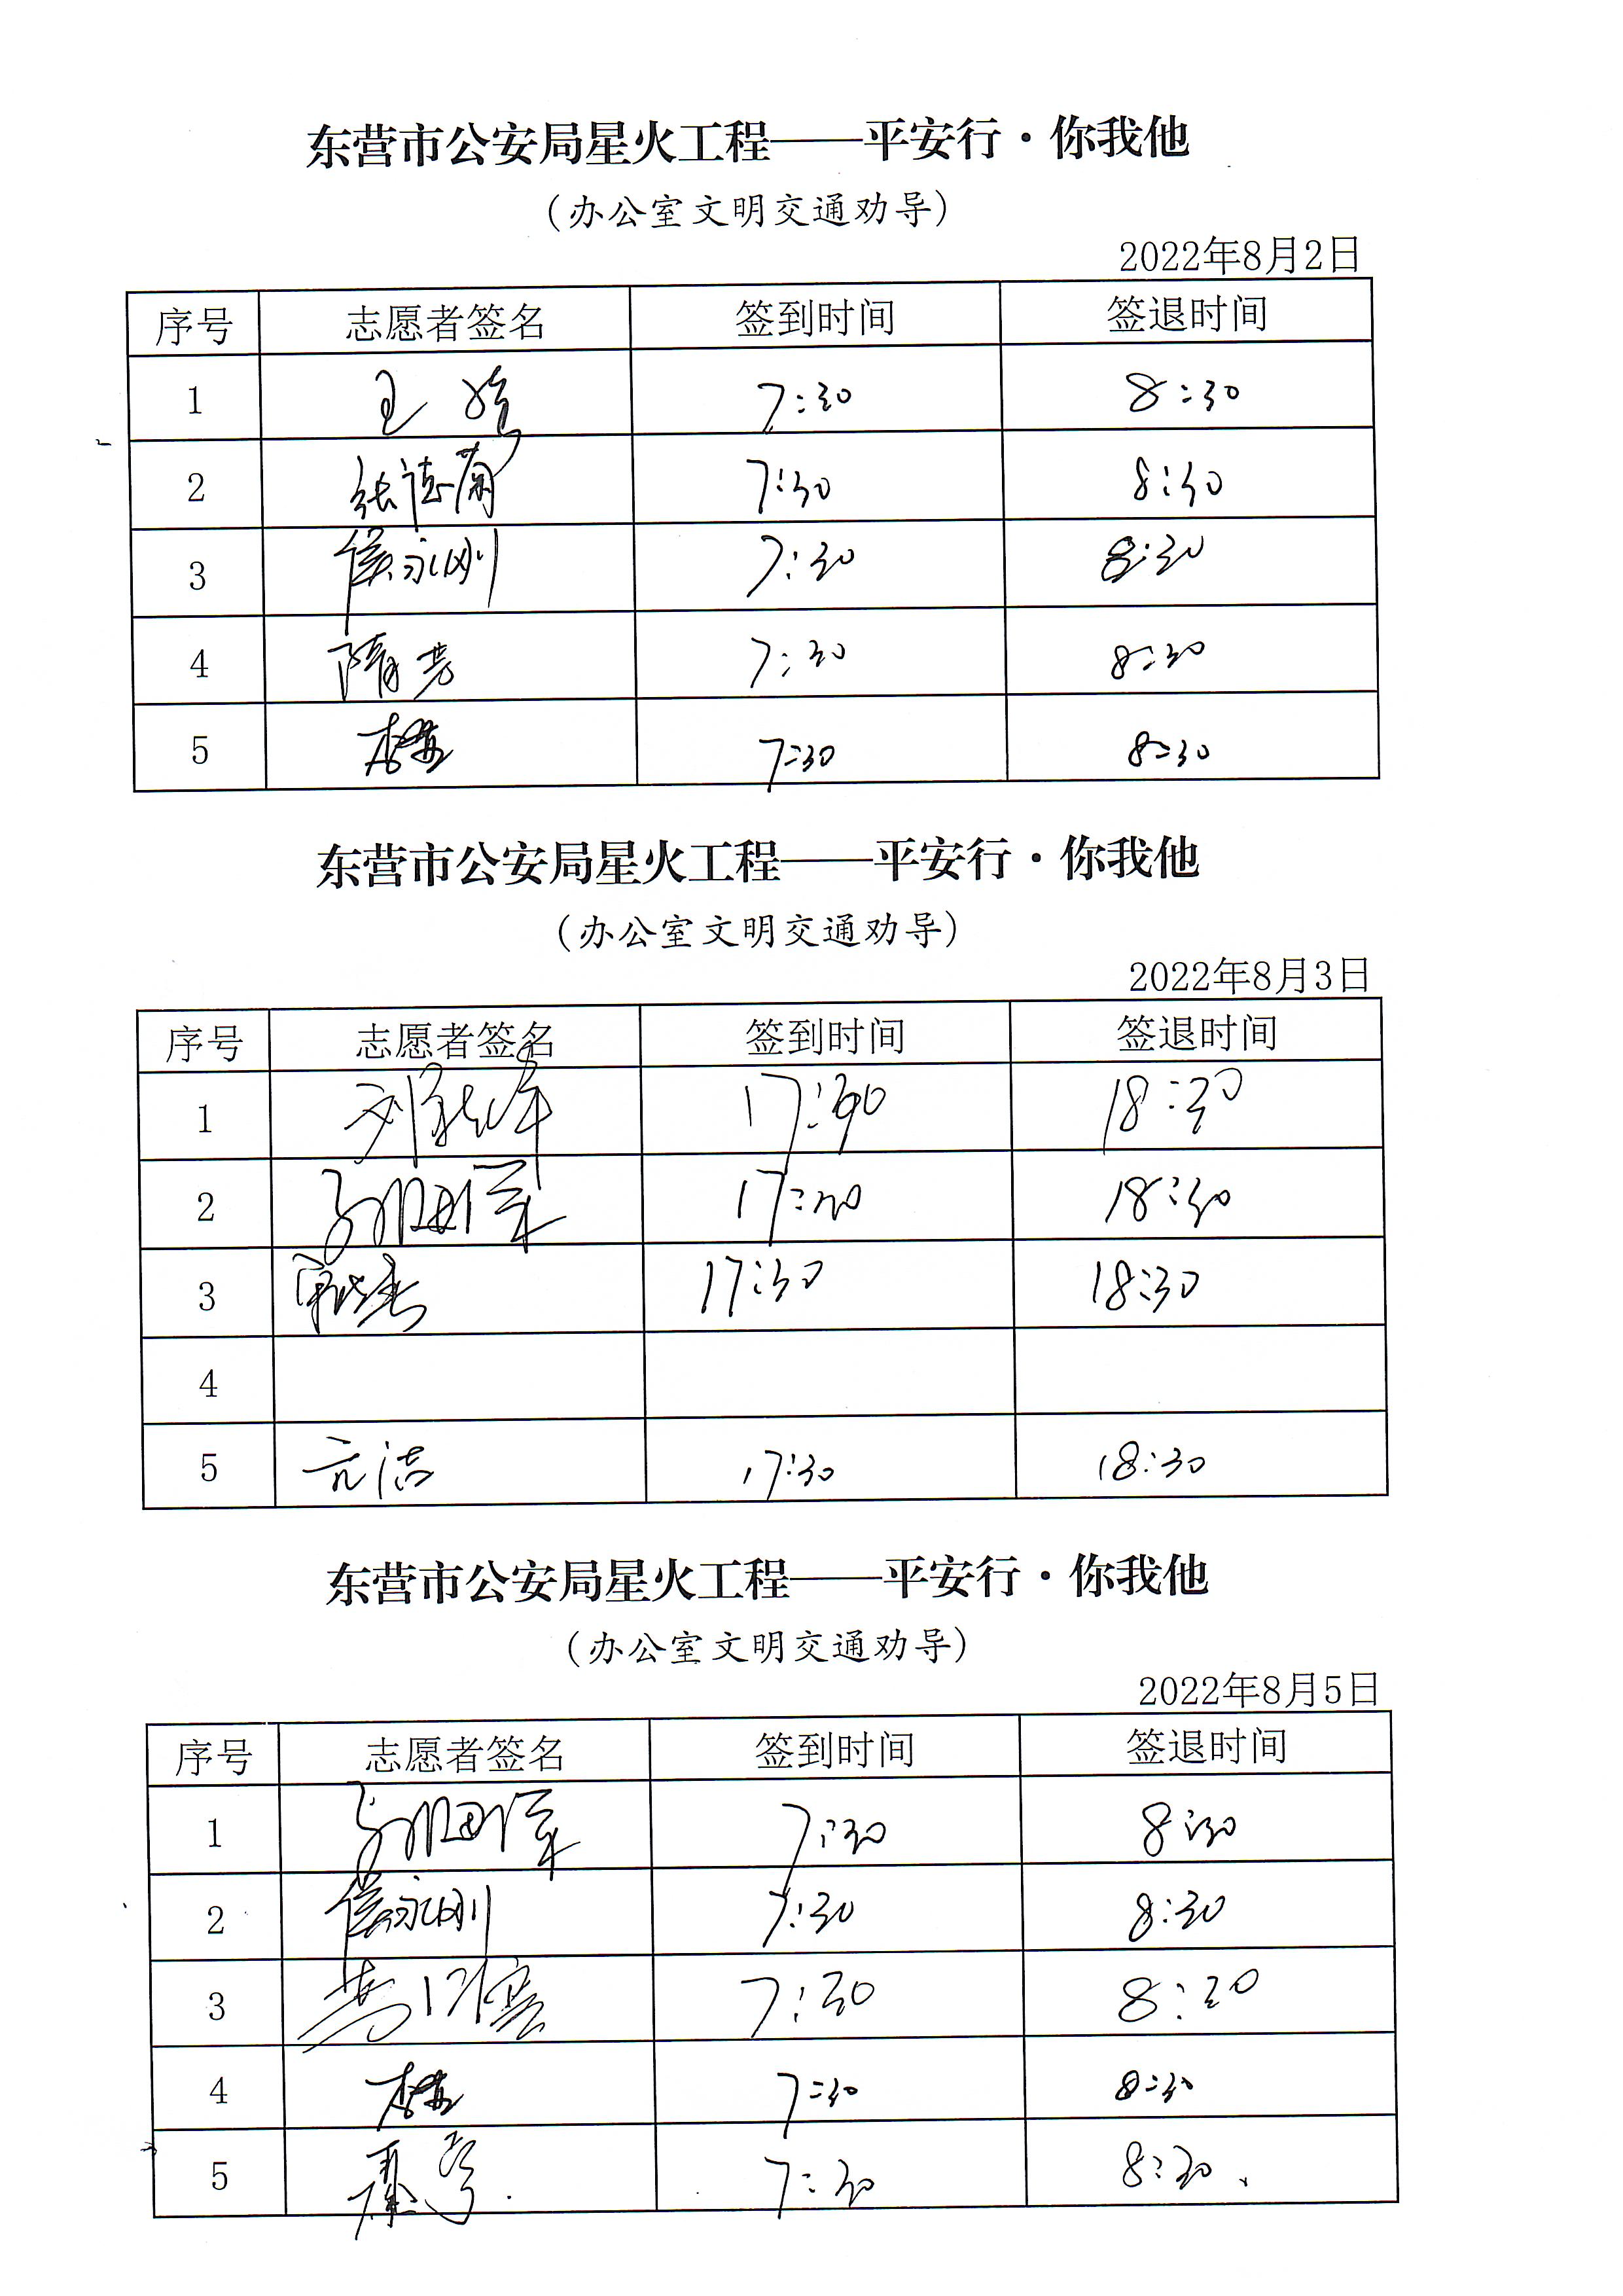 东营市公安局星火工程——平安行·你我他
（办公室文明交通劝导）
2022年8月2日
序号 志愿者签名 签到时间 签退时间
1 王 7:30 8:30
2 张德菊 7:30 8:30
3 侯永刚 7:30 8:30
4 隋芳 7:30 8:30
5 7:30 8:30
东营市公安局星火工程——平安行·你我他
（办公室文明交通劝导）
2022年8月3日
序号 志愿者签名 签到时间 签退时间
1 刘 17:30 18:30
2 17:30 18:30
3 17:30 18:30
4
5 亓洁 17:30 18:30
东营市公安局星火工程——平安行·你我他
（办公室文明交通劝导）
2022年8月5日
序号 志愿者签名 签到时间 签退时间
1 7:30 8:30
2 侯永刚 7:30 8:30
3 7:30 8:30
4 7:30 8:30
5 7:30 8:30